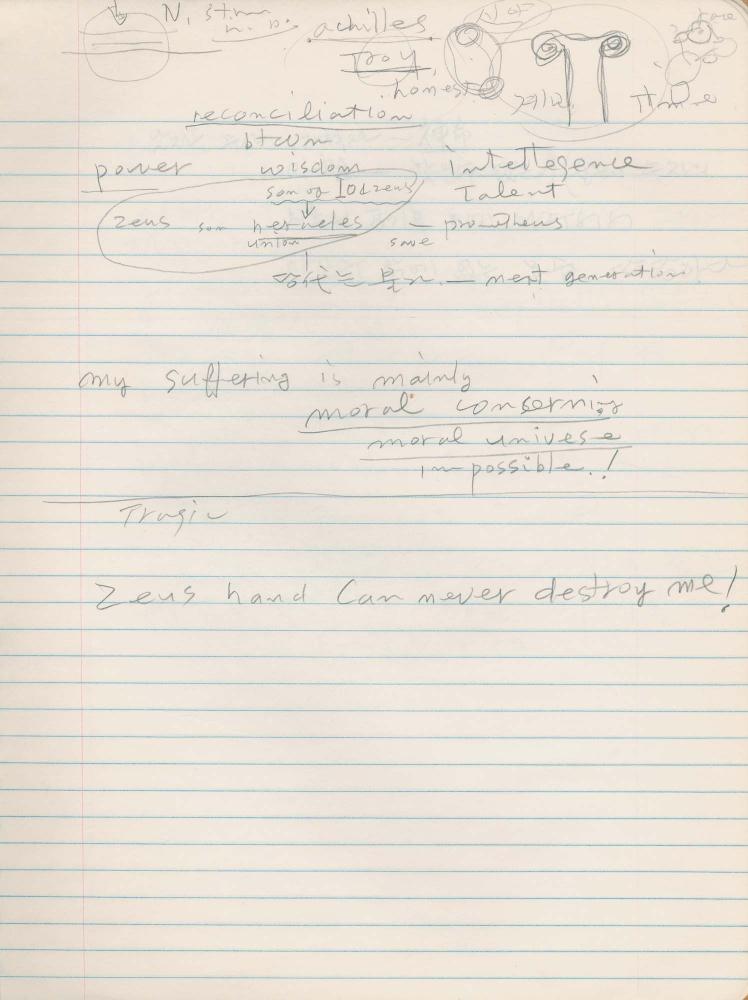 achilles
Troy,
honest
time
reconciliation
btwn
power wisdom intellegence
son of Io & zeus Talent
zeus son heracles — prometheus
union save
— next generation
my suffering is mainly
moral conserning
moral univese
impossible!
Tragic
Zeus hand Can never destroy me!